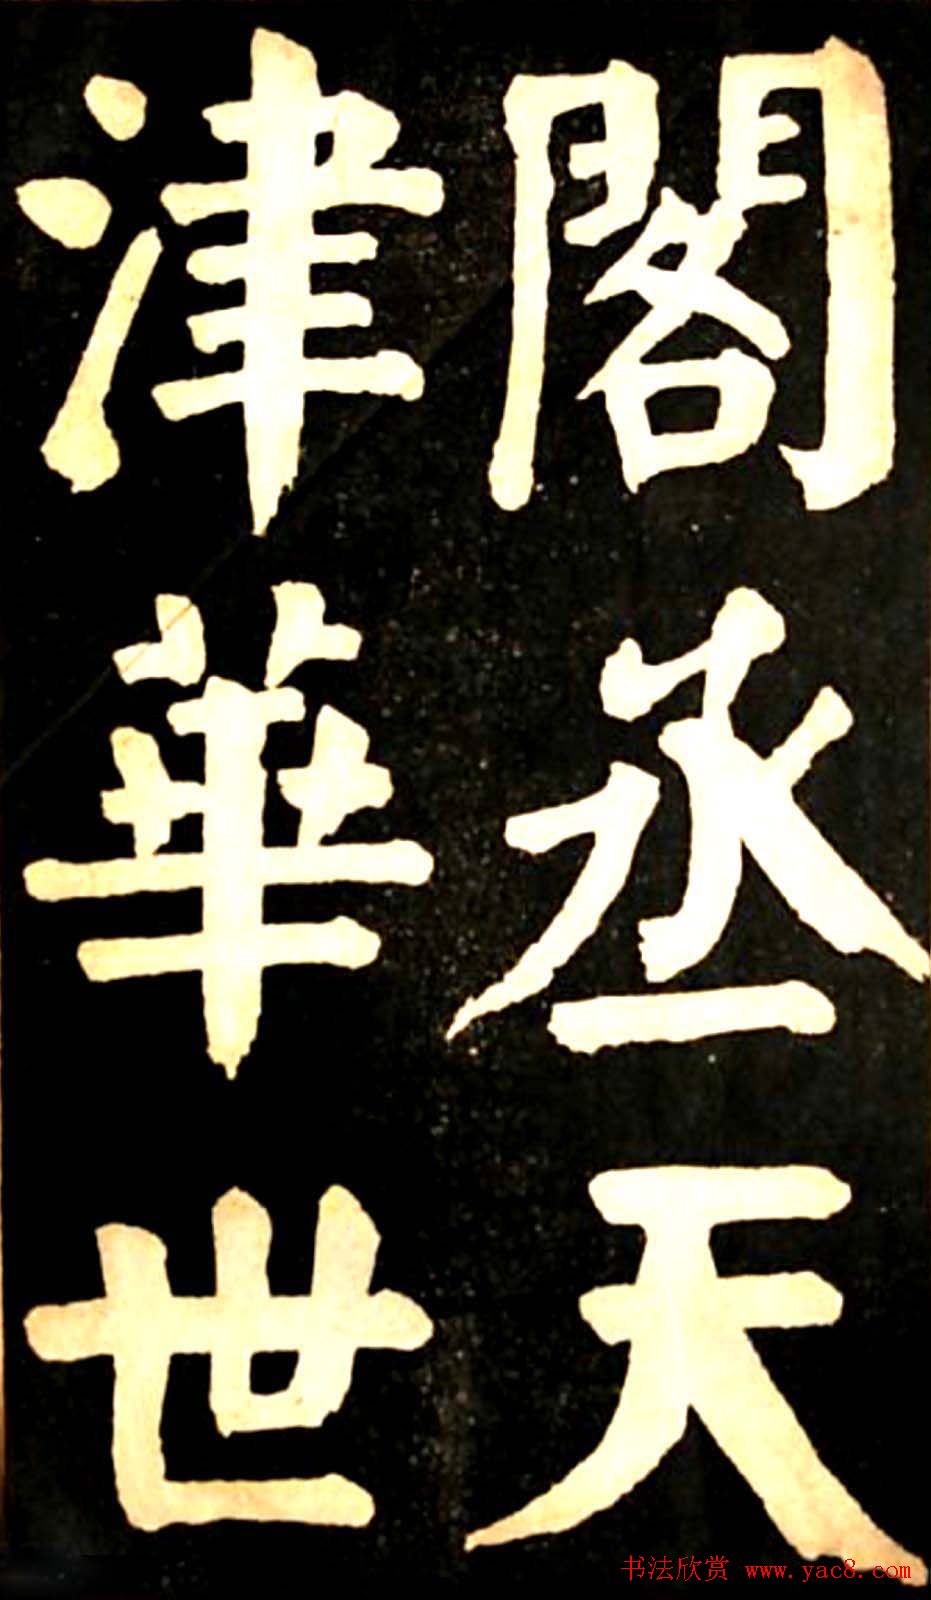 閣丞天
津華世
书法欣赏 www.yac8.com